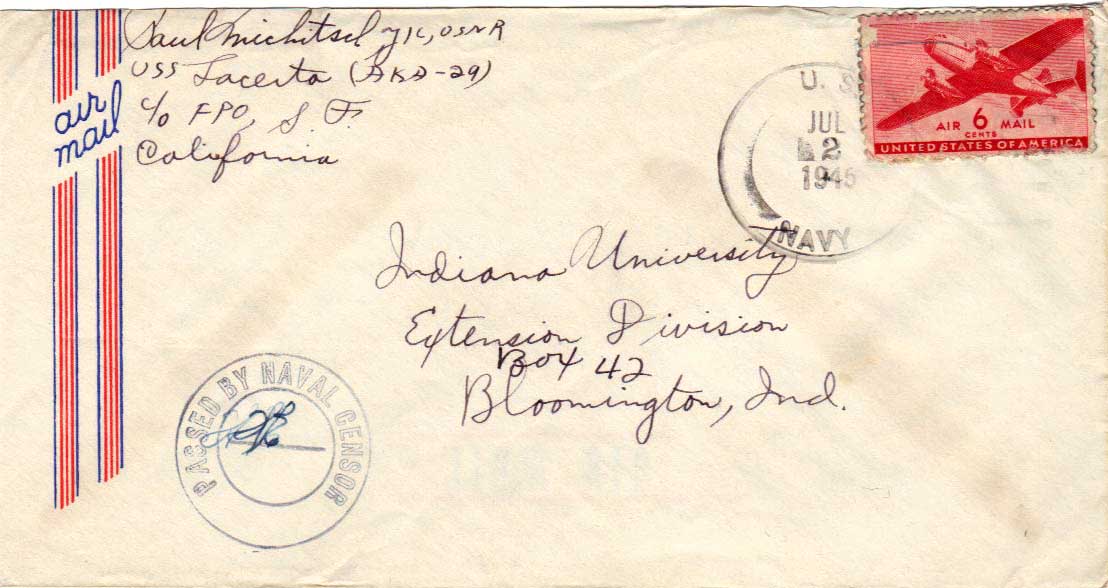 Paul Michitsch Y1C, USNR
USS Lacerta (AKA-29)
c/o FPO, S. F.
California
air
mail
U. S.
JUL
2
1945
NAVY
AIR 6 MAIL
CENTS
UNITED STATES OF AMERICA
Indiana University
Extension Division
Box 42
Bloomington, Ind.
PASSED BY NAVAL CENSOR